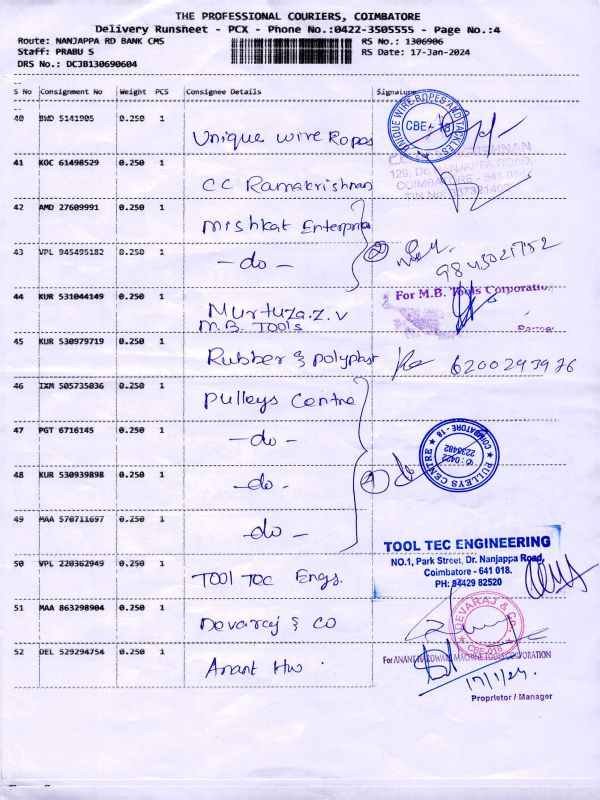 THE PROFESSIONAL COURIERS, COIMBATORE
Delivery Runsheet - PCX - Phone No.:0422-3505555 - Page No.:4
Route: NANJAPPA RD BANK CMS RS No.: 1306906
Staff: PRABU S RS Date: 17-Jan-2024
DRS No.: DCJB130690604
S No Consignment No Weight PCS Consignee Details Signature
40 BWD 5141905 0.250 1 Unique wire Ropes
UNIQUE WIRE ROPES AND TACKLES
CBE - 18
41 KOC 61498529 0.250 1 CC Ramakrishnan
129, Dr. NANJAPPA ROAD,
COIMBATORE - 641 018
42 AMD 27609991 0.250 1 Mishkat Enterprise
43 VPL 945495182 0.250 1 - do - 2
44 KUR 531044149 0.250 1 Murtuza.Z.V
M.B. TOOLS
For M.B. Tools Corporation
Partner
45 KUR 530979719 0.250 1 Rubber & polyplast 6200293976
46 IXM 505735036 0.250 1 Pulleys Centre
47 PGT 6716145 0.250 1 - do -
48 KUR 530939898 0.250 1 - do - 4
★ PULLEYS CENTRE ★ COIMBATORE - 18
✆ : 0422
2238482
49 MAA 570711697 0.250 1 - do -
TOOL TEC ENGINEERING
NO.1, Park Street, Dr. Nanjappa Road,
Coimbatore - 641 018.
PH: 94429 82520
50 VPL 220362949 0.250 1 TOOL TOC Engs.
51 MAA 863298904 0.250 1 Devaraj & CO
DEVARAJ & Co.
CBE-018
52 DEL 529294754 0.250 1 Anant Hw
For ANANT HARDWARE MACHINE TOOLS CORPORATION
17/1/24.
Proprietor / Manager